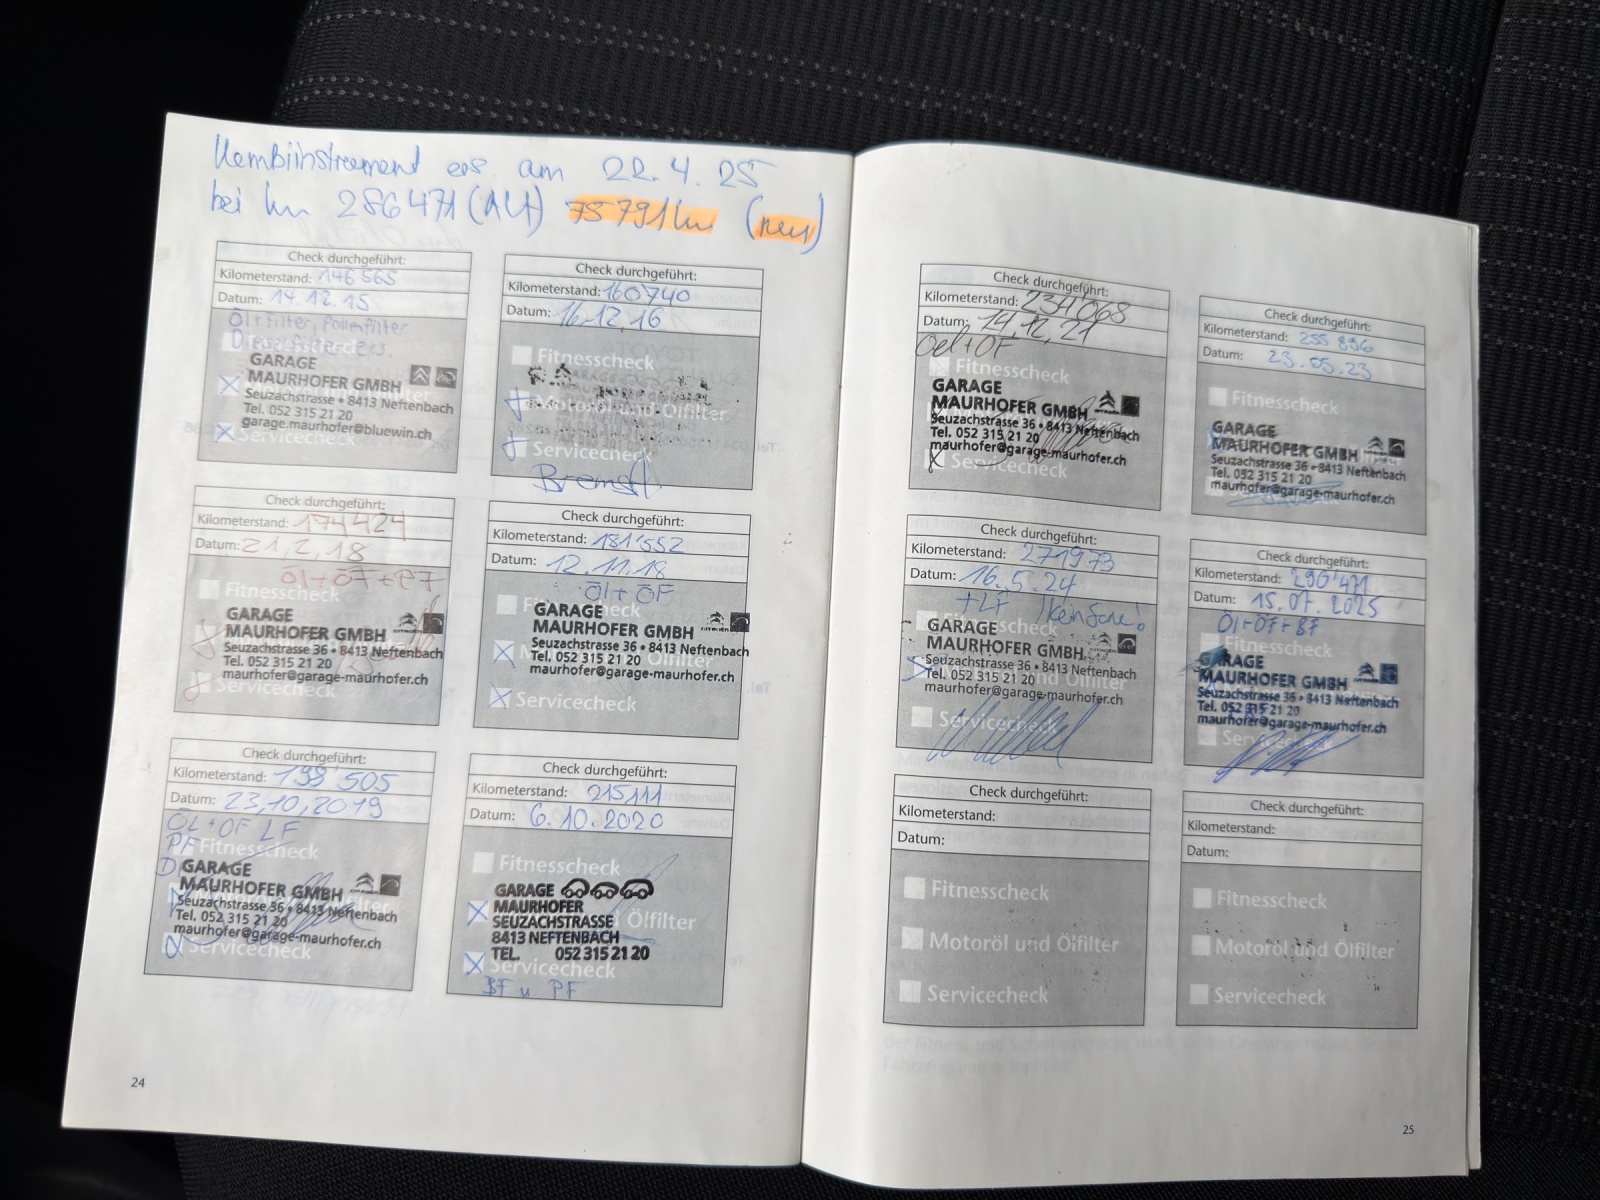 Kombiinstrument ers. am 22.4.25
bei km 286471 (Alt) 75791 km (neu)
Check durchgeführt:
Kilometerstand: 146565
Datum: 14.12.15
Öl+Filter, Pollenfilter
GARAGE
MAURHOFER GMBH
Seuzachstrasse • 8413 Neftenbach
Tel. 052 315 21 20
garage.maurhofer@bluewin.ch
Servicecheck
Check durchgeführt:
Kilometerstand: 160740
Datum: 16.12.16
Fitnesscheck
Motoröl und Ölfilter
Servicecheck
Bremsfl.
Check durchgeführt:
Kilometerstand: 174424
Datum: 21.2.18
Öl+ÖF+PF
Fitnesscheck
GARAGE
MAURHOFER GMBH
CITROËN
Seuzachstrasse 36 • 8413 Neftenbach
Tel. 052 315 21 20
maurhofer@garage-maurhofer.ch
Servicecheck
Check durchgeführt:
Kilometerstand: 181'552
Datum: 12.11.18
Öl+ÖF
GARAGE
MAURHOFER GMBH
CITROËN
Seuzachstrasse 36 • 8413 Neftenbach
Tel. 052 315 21 20
maurhofer@garage-maurhofer.ch
Servicecheck
Check durchgeführt:
Kilometerstand: 199'505
Datum: 23,10,2019
ÖL+ÖF LF
PF Fitnesscheck
GARAGE
MAURHOFER GMBH
CITROËN
Seuzachstrasse 36 • 8413 Neftenbach
Tel. 052 315 21 20
maurhofer@garage-maurhofer.ch
Servicecheck
Check durchgeführt:
Kilometerstand: 215111
Datum: 6.10.2020
Fitnesscheck
GARAGE
MAURHOFER
SEUZACHSTRASSE
8413 NEFTENBACH
TEL. 052 315 21 20
Ölfilter
Servicecheck
BF u. PF
24
Check durchgeführt:
Kilometerstand: 234'068
Datum: 14.12.21
Oel+ÖF
Fitnesscheck
GARAGE
MAURHOFER GMBH
CITROËN
Seuzachstrasse 36 • 8413 Neftenbach
Tel. 052 315 21 20
maurhofer@garage-maurhofer.ch
Servicecheck
Check durchgeführt:
Kilometerstand: 255 896
Datum: 23.05.23
Fitnesscheck
GARAGE
MAURHOFER GMBH
Seuzachstrasse 36 • 8413 Neftenbach
Tel. 052 315 21 20
maurhofer@garage-maurhofer.ch
Check durchgeführt:
Kilometerstand: 271973
Datum: 16.5.24
+LF
GARAGE
MAURHOFER GMBH
Seuzachstrasse 36 • 8413 Neftenbach
Tel. 052 315 21 20
maurhofer@garage-maurhofer.ch
Servicecheck
Check durchgeführt:
Kilometerstand: 290'471
Datum: 15.07.2025
Öl+ÖF+BF
GARAGE
MAURHOFER GMBH
Seuzachstrasse 36 • 8413 Neftenbach
Tel. 052 315 21 20
maurhofer@garage-maurhofer.ch
Check durchgeführt:
Kilometerstand:
Datum:
Fitnesscheck
Motoröl und Ölfilter
Servicecheck
Check durchgeführt:
Kilometerstand:
Datum:
Fitnesscheck
Motoröl und Ölfilter
Servicecheck
25